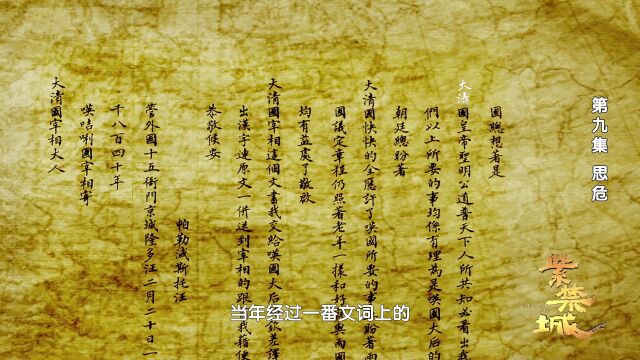 第九集 思危
紫禁城
國總想着是
大清國皇帝聖明公道普天下人所共知必看出我
們以上所要的事均係有理為是𠸄國大后的
朝廷總盼著
大清國快快的全應許了𠸄國所要的事 盼著兩
國議定章程仍照著老年一樣和好 與兩國
均有益處了敬啟
大清國宰相這個文書我交給𠸄國大后 欽差譯
出漢字連原文一併送到宰相的跟 我指使
恭敬候安
帕勒滅斯托汪
管外國十五衙門京城隆多汪二月二十日一
千八百四十年
𠸄咭唎國宰相寄
大清國宰相大人
当年经过一番文词上的